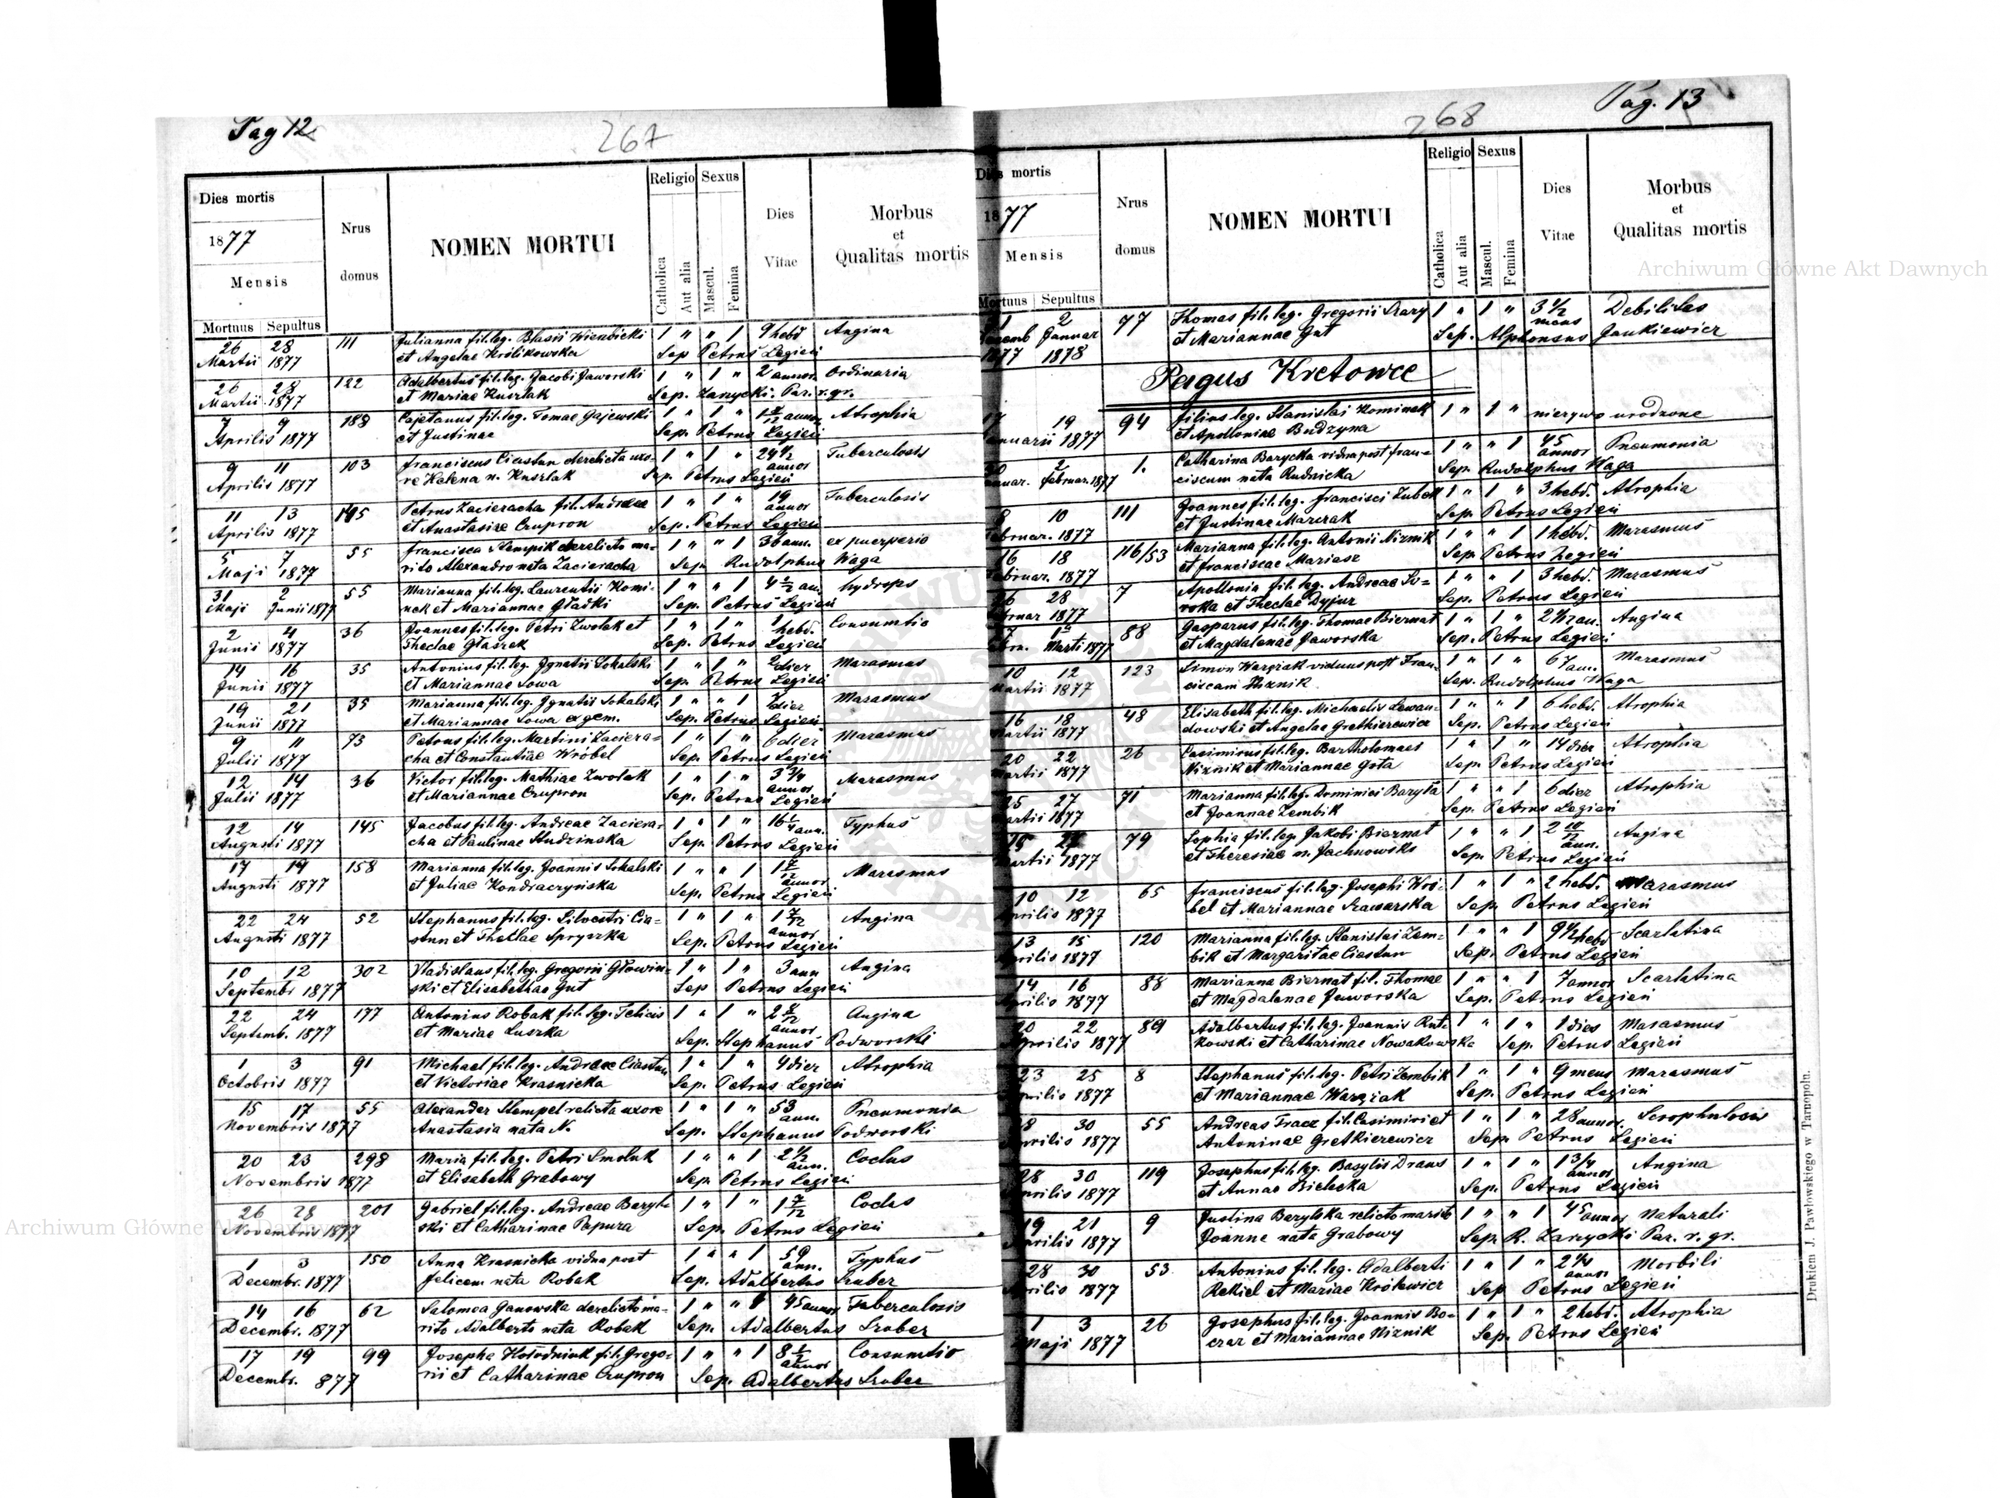 Pag 12
267
Dies mortis
1877
Mensis
Mortuus Sepultus
Nrus domus
NOMEN MORTUI
Religio
Catholica
Aut alia
Sexus
Mascul.
Femina
Dies Vitae
Morbus et Qualitas mortis
26 28 111 Julianna fil. leg. Blasii 1 " " 1 9 hebd Angina
Martii 1877 et Angelae Królikowska Sep. Petrus Legień
26 28 122 Adalbertus fil. leg. Jacobi Jaworski 1 " 1 " 2 annor. Ordinaria
Martii 1877 et Mariae Kuszlak Sep. Zarzycki Par. r. gr.
7 9 188 Cajetanus fil. leg. Tomae Gajewski 1 " 1 " Atrophia
Aprilis 1877 et Justinae Sep. Petrus Legień
9 11 103 Franciscus Ciastun derelicta uxo- 1 " 1 " 24 1/2 annor Tuberculosis
Aprilis 1877 re Helena n. Kuszlak Sep. Petrus Legień
11 13 195 Petrus Zacieracha fil. Andreae 1 " 1 " 19 annor Tuberculosis
Aprilis 1877 et Anastasiae Czupron Sep. Petrus Legień
5 7 55 Francisca Stempik derelicto ma- 1 " " 1 36 ann. ex puerperio
Maji 1877 rito Alexandro nata Zacieracha Sep. Rudolphus Waga
31 2 55 Marianna fil. leg. Laurentii Komi- 1 " " 1 4 1/2 an. hydrops
Maji Junii 1877 nek et Mariannae Sep. Petrus Legień
2 4 36 Joannes fil. leg. Petri Zwolak et 1 " 1 " 1 hebd. Consumtio
Junii 1877 Theclae Głaszek Sep. Petrus Legień
14 16 35 Antonius fil. leg. Ignatii Sokalski 1 " 1 " 2 dier Marasmus
Junii 1877 et Mariannae Sowa Sep. Petrus Legień
19 21 35 Marianna fil. leg. Ignatii Sokalski 1 " " 1 7 dier Marasmus
Junii 1877 et Mariannae Sowa ex gem. Sep. Petrus Legień
9 11 73 Petrus fil. leg. Martini Zaciera- 1 " 1 " 6 dier Marasmus
Julii 1877 cha et Constantiae Wróbel Sep. Petrus Legień
12 14 36 Victor fil. leg. Mathiae Zwolak 1 " 1 " 3 3/4 annor Marasmus
Julii 1877 et Mariannae Czupron Sep. Petrus Legień
12 14 145 Jacobus fil. leg. Andreae Zaciera- 1 " 1 " 16 1/4 ann. Typhus
Augusti 1877 cha et Paulinae Studzinska Sep. Petrus Legień
17 19 158 Marianna fil. leg. Joannis Sokalski 1 " " 1 annor Marasmus
Augusti 1877 et Juliae Kondraczyńska Sep. Petrus Legień
22 24 52 Stephanus fil. leg. Silvestri Cia- 1 " 1 " 1 7/12 annor Angina
Augusti 1877 stun et Theclae Spryszka Sep. Petrus Legień
10 12 302 Vladislaus fil. leg. Gregorii Głowin- 1 " 1 " 3 ann Angina
Septembr 1877 ski et Elisabethae Gut Sep Petrus Legień
22 24 177 Antonius Robak fil. leg. Felicis 1 " 1 " annor Angina
Septemb. 1877 et Mariae Luszka Sep. Stephanus Podworski
1 3 91 Michael fil. leg. Andreae Ciastun 1 " 1 " 4 dier Atrophia
Octobris 1877 et Victoriae Krasnicka Sep. Petrus Legień
15 17 55 Alexander Stempel relicta uxore 1 " 1 " 53 ann. Pneumonia
Novembris 1877 Anastasia nata N. Sep. Stephanus Podworski
20 23 298 Maria fil. leg. Petri Smoluk 1 " " 1 2 1/2 ann. Coclus
Novembris 1877 et Elisabeth Grabowy Sep. Petrus Legień
26 28 201 Gabriel fil. leg. Andreae Baryl- 1 " 1 " 1 7/12 Coclus
Novembris 1877 ski et Catharinae Pepura Sep. Petrus Legień
1 3 150 Anna Krasnicka vidua post 1 " " 1 59 ann. Typhus
Decembr. 1877 felicem nata Robak Sep. Adalbertus Szuber
14 16 62 Salomea Ganowska derelicto ma- 1 " " 1 45 annor Tuberculosis
Decembr. 1877 rito Adalberto nata Robak Sep. Adalbertus Szuber
17 19 99 Josepha Kołodniuk fil. Grego- 1 " " 1 8 1/2 annor Consumtio
Decembr. 877 rii et Catharinae Czupron Sep. Adalbertus Szuber
Pag. 13
268
Dies mortis
1877
Mensis
Mortuus Sepultus
Nrus domus
NOMEN MORTUI
Religio
Catholica
Aut alia
Sexus
Mascul.
Femina
Dies Vitae
Morbus et Qualitas mortis
31 2 77 Thomas fil. leg. Gregorii Szary 1 " 1 " 3 1/2 mens Debilitas
Decemb Januar et Mariannae Gut Sep. Alphonsus Jankiewicz
1877 1878
Pagus Kretowce
17 19 94 filius leg. Stanislai Kominek 1 " 1 " nieżywo urodzone
Januarii 1877 et Apolloniae Budzyna
30 2 1. Catharina Barycka vidua post fran- 1 " " 1 45 annor Pneumonia
Januar. Februar. 1877 ciscum nata Rudnicka Sep. Rudolphus Waga
8 10 111 Joannes fil. leg. Francisci Zubek 1 " 1 " 3 hebd. Atrophia
Februar. 1877 et Justinae Marczak Sep. Petrus Legień
16 18 116/53 Marianna fil. leg. Antonii Niznik 1 " " 1 1 hebd. Marasmus
Februar. 1877 et franciscae Mariasz Sep. Petrus Legień
26 28 7 Apollonia fil. leg. Andreae So- 1 " " 1 3 hebd. Marasmus
Februar 1877 roka et Theclae Dyjur Sep. Petrus Legień
88 Gasparus fil. leg. Thomae Biernat 1 " 1 " 2 1/2 an. Angina
Marti 1877 et Magdalenae Jaworska Sep. Petrus Legień
10 12 123 Simon Wargiak viduus post Fran- 1 " 1 " 67 ann. Marasmus
Martii 1877 ciscam Niznik Sep. Rudolphus Waga
16 18 48 Elisabeth fil. leg. Michaelis Lewan- 1 " " 1 6 hebd. Atrophia
Martii 1877 dowski et Angelae Gretkierewicz Sep. Petrus Legień
20 22 26 Casimirus fil. leg. Bartholomaei 1 " 1 " 14 dier Atrophia
Martii 1877 Niznik et Mariannae Gota Sep. Petrus Legień
25 27 71 Marianna fil. leg. Dominici Baryła 1 " " 1 6 dier Atrophia
Martii 1877 et Joannae Zembik Sep. Petrus Legień
79 Sophia fil. leg. Jakobi Biernat 1 " " 1 2 10/12 ann. Angina
Martii 1877 et Theresiae n. Jachnowski Sep. Petrus Legień
10 12 65 Franciscus fil. leg. Josephi Wró- 1 " 1 " 2 hebd. Marasmus
Aprilis 1877 bel et Mariannae Szawarska Sep. Petrus Legień
13 15 120 Marianna fil. leg. Stanislai Zem- 1 " " 1 9 1/2 hebd Scarlatina
Aprilis 1877 bik et Margaritae Ciastun Sep. Petrus Legień
14 16 88 Marianna Biernat fil. Thomae 1 " " 1 7 annor Scarlatina
Aprilis 1877 et Magdalenae Jaworska Sep. Petrus Legień
20 22 89 Adalbertus fil. leg. Joannis Rut- 1 " 1 " 1 dies Marasmus
Aprilis 1877 kowski et Catharinae Nowakowska Sep. Petrus Legień
23 25 8 Stephanus fil. leg. Petri Zembik 1 " 1 " 9 mens Marasmus
Aprilis 1877 et Mariannae Wargiak Sep. Petrus Legień
28 30 55 Andreas Tracz fil. Casimiri et 1 " 1 " 28 annor. Scrophulosis
Aprilis 1877 Antoninae Gretkierewicz Sep. Petrus Legień
28 30 119 Josephus fil. leg. Basylis Draus 1 " 1 " 1 3/4 annor Angina
Aprilis 1877 et Annae Bielecka Sep. Petrus Legień
19 21 9 Justina Barylska relicto marito 1 " " 1 45 annor Naturali
Aprilis 1877 Joanne nata Grabowy Sep. R. Zarzycki Par. r. gr.
28 30 53 Antonius fil. leg. Adalberti 1 " 1 " 2 1/4 annor Morbili
Aprilis 1877 Rekiel et Mariae Sep. Petrus Legień
1 3 26 Josephus fil. leg. Joannis Bo- 1 " 1 " 2 hebd. Atrophia
Maji 1877 czar et Mariannae Niznik Sep. Petrus Legień
Drukiem J. Pawłowskiego w Tarnopolu.
Archiwum Główne Akt Dawnych
Archiwum Główne Akt Dawnych